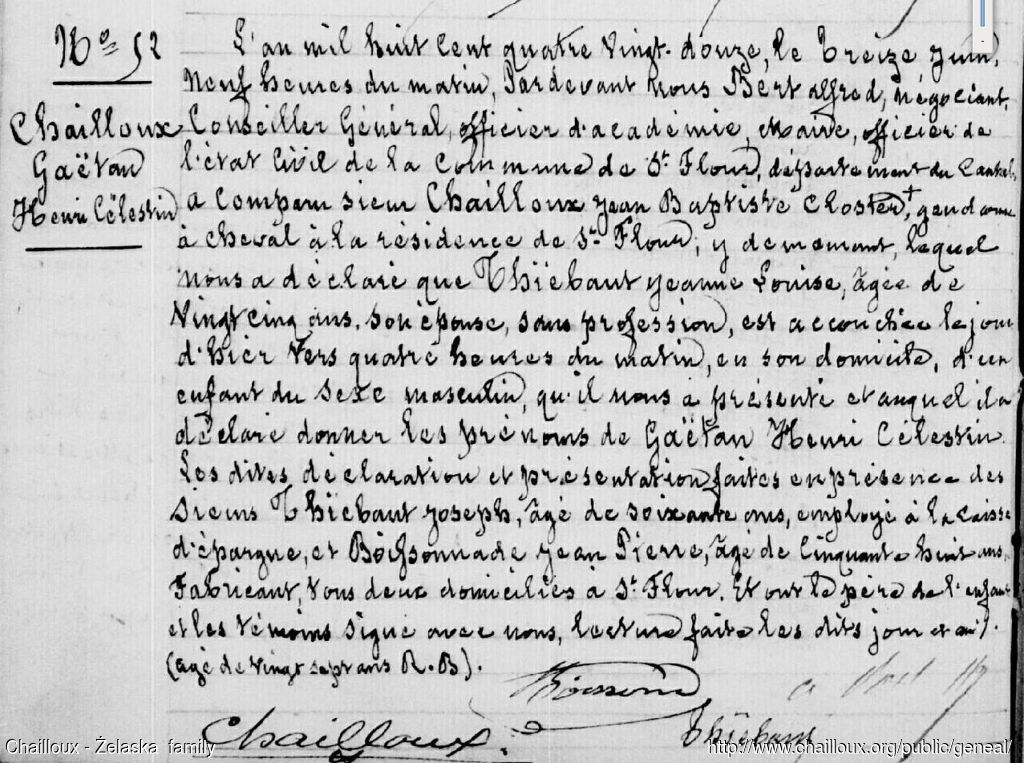 No 52
Chailloux
Gaëtan
Henri Célestin
L'an mil huit cent quatre vingt-douze, le treize, juin,
Neuf heures du matin, Pardevant nous Bert alfred, négociant,
Conseiller Général, officier d'académie, Maire, officier de
l'état civil de la commune de St Flour, département du Cantal,
a comparu sieur Chailloux Jean Baptiste Closter,+ gendarme
à cheval à la résidence de St Flour, y demeurant, lequel
nous a déclaré que Thiébaut Jeanne Louise, âgée de
Vingt cinq ans, son épouse, sans profession, est accouchée le jour
d'hier vers quatre heures du matin, en son domicile, d'un
enfant du sexe masculin, qu'il nous a présenté et auquel il a
déclaré donner les prénoms de Gaëtan Henri Célestin.
Les dites déclaration et présentation faites en présence des
Sieurs Thiébaut Joseph, âgé de soixante ans, employé à la caisse
d'épargne, et Boissonnade Jean Pierre, âgé de cinquante huit ans,
Fabricant, tous deux domiciliés à St Flour. Et ont le père de l'enfant
et les témoins signé avec nous, lecture faite les dits jour et an).
(agé de vingt sept ans R. B).
Chailloux
Thiébaut
Chailloux - Żelaska family
http://www.chailloux.org/public/geneal/